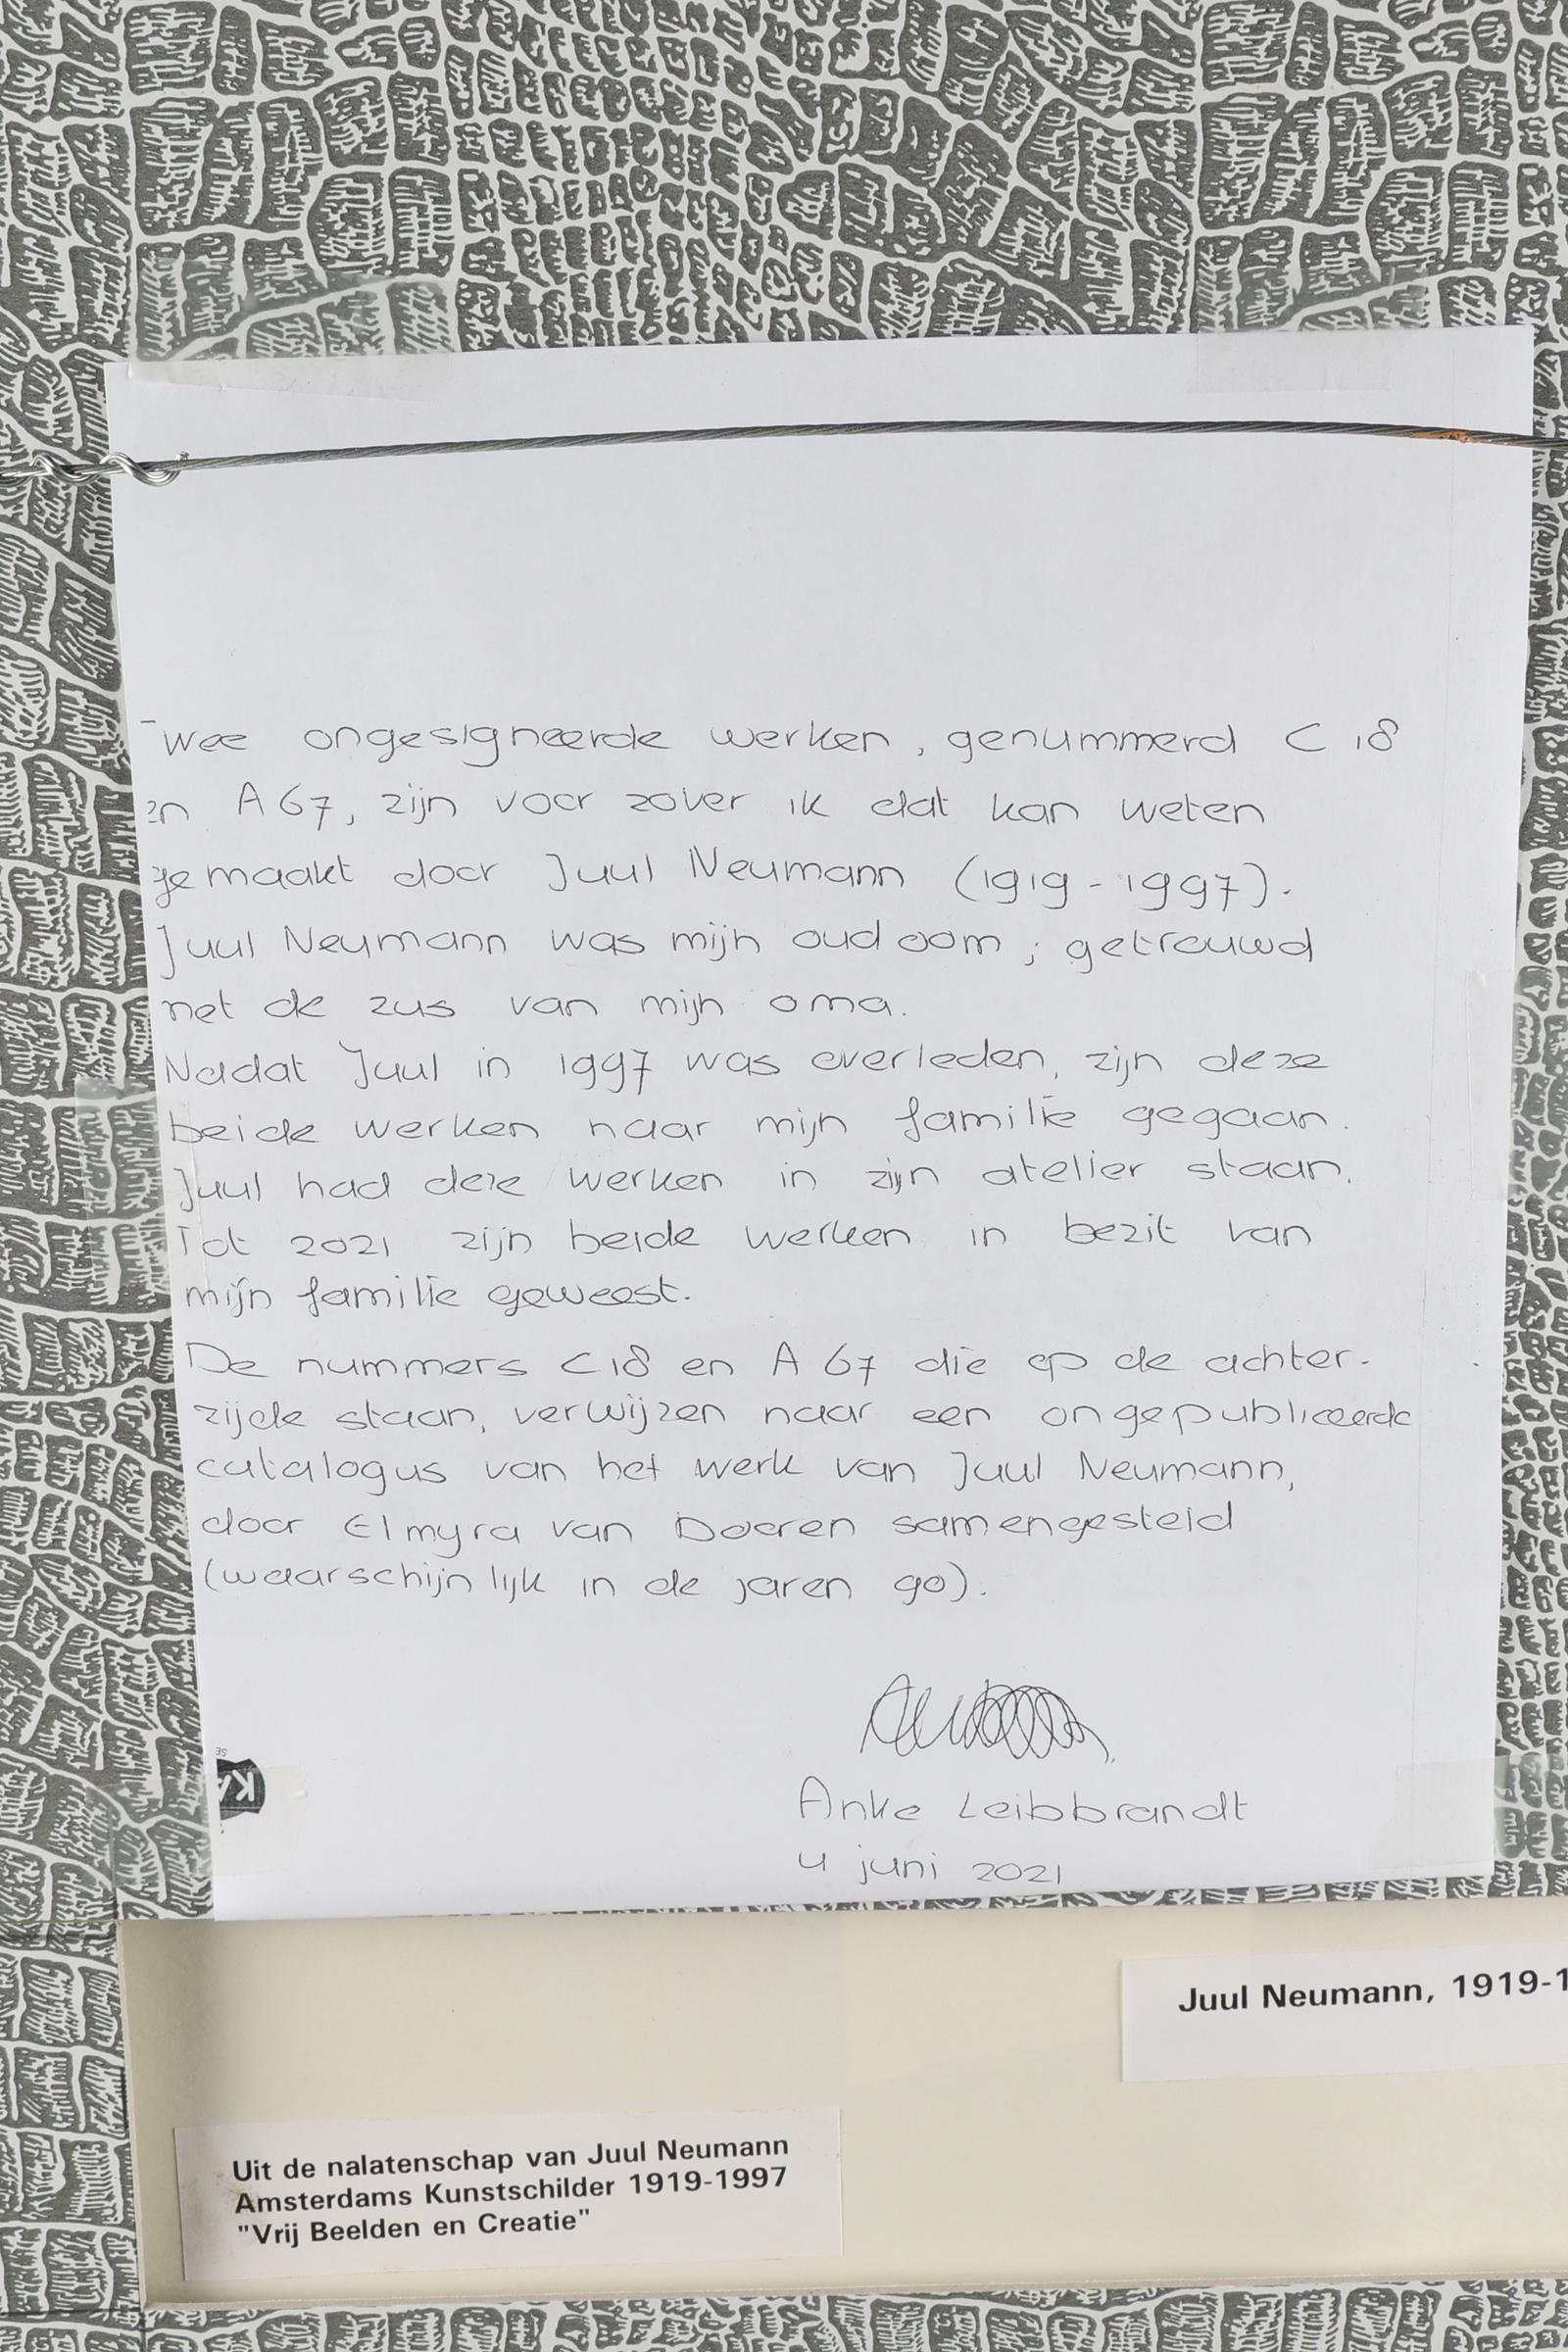 Twee ongesigneerde werken, genummerd C 18
en A 67, zijn voor zover ik dat kan weten
gemaakt door Juul Neumann (1919-1997).
Juul Neumann was mijn oudoom; getrouwd
met de zus van mijn oma.
Nadat Juul in 1997 was overleden, zijn deze
beide werken naar mijn familie gegaan.
Juul had deze werken in zijn atelier staan.
Tot 2021 zijn beide werken in bezit van
mijn familie geweest.
De nummers C18 en A 67 die op de achter-
zijde staan, verwijzen naar een ongepubliceerde
catalogus van het werk van Juul Neumann,
door Elmyra van Dooren samengesteld
(waarschijnlijk in de jaren 90).
Anke Leibbrandt
4 juni 2021
KA
Juul Neumann, 1919-1
Uit de nalatenschap van Juul Neumann
Amsterdams Kunstschilder 1919-1997
"Vrij Beelden en Creatie"